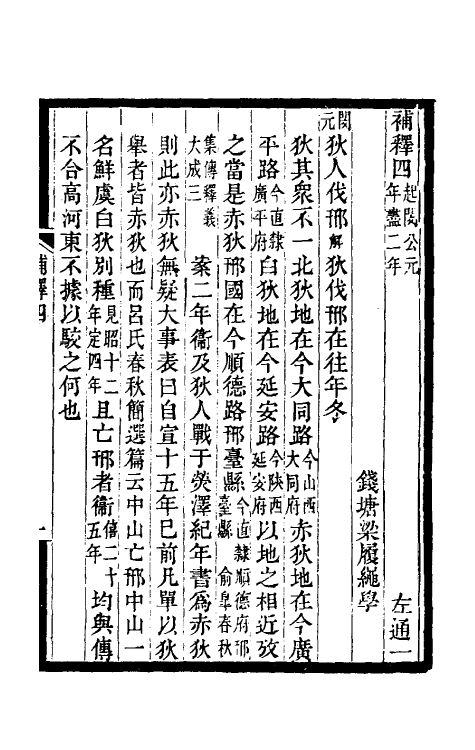 補釋四起閔公元年盡二年
錢塘梁履繩學 左通一
閔元狄人伐邢解狄伐邢在往年冬
狄其衆不一北狄地在今大同路今山西大同府赤狄地在今廣
平路今直隷廣平府白狄地在今延安路今陜西延安府以地之相近攷
之當是赤狄邢國在今順德路邢臺縣今直隷順德府邢臺縣 俞皋春秋
集傳釋義大成三 案二年衞及狄人戰于熒澤紀年書爲赤狄
則此亦赤狄無疑大事表曰自宣十五年已前凡單以狄
舉者皆赤狄也而呂氏春秋簡選篇云中山亡邢中山一
名鮮虞白狄別種見昭十二年定四年且亡邢者衞僖二十五年均與傳
不合高河東不據以駮之何也
補釋四
一